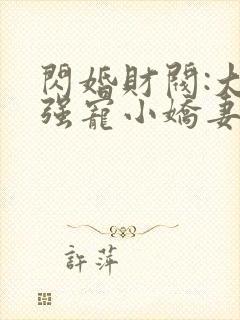 閃婚財閥:大
強寵小嬌妻
許萍